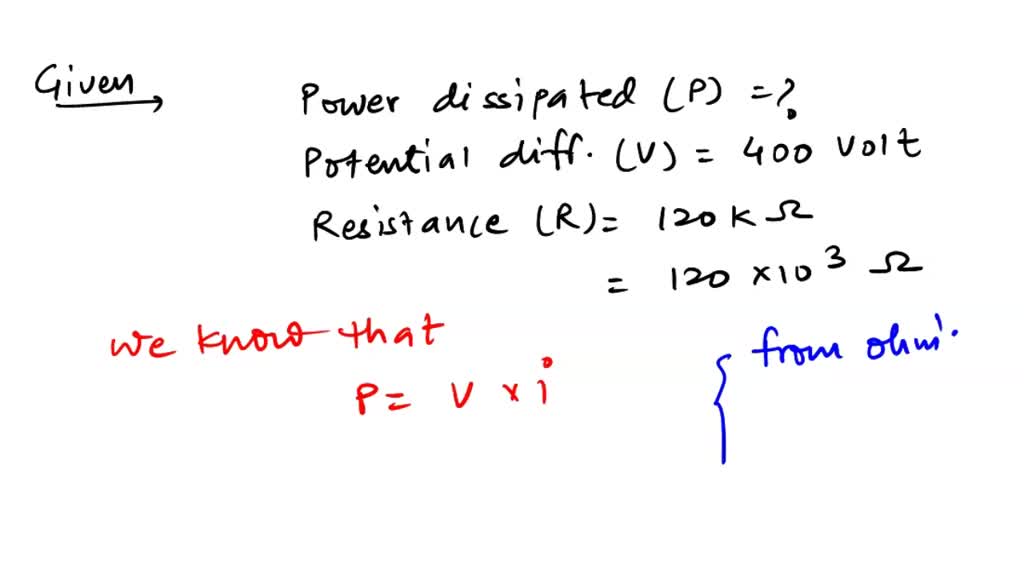 Given
Power dissipated (P) = ?
Potential diff. (V) = 400 volt
Resistance (R) = 120 K Ω
= 120 × 10³ Ω
we know that
P = V × i
from ohm'.